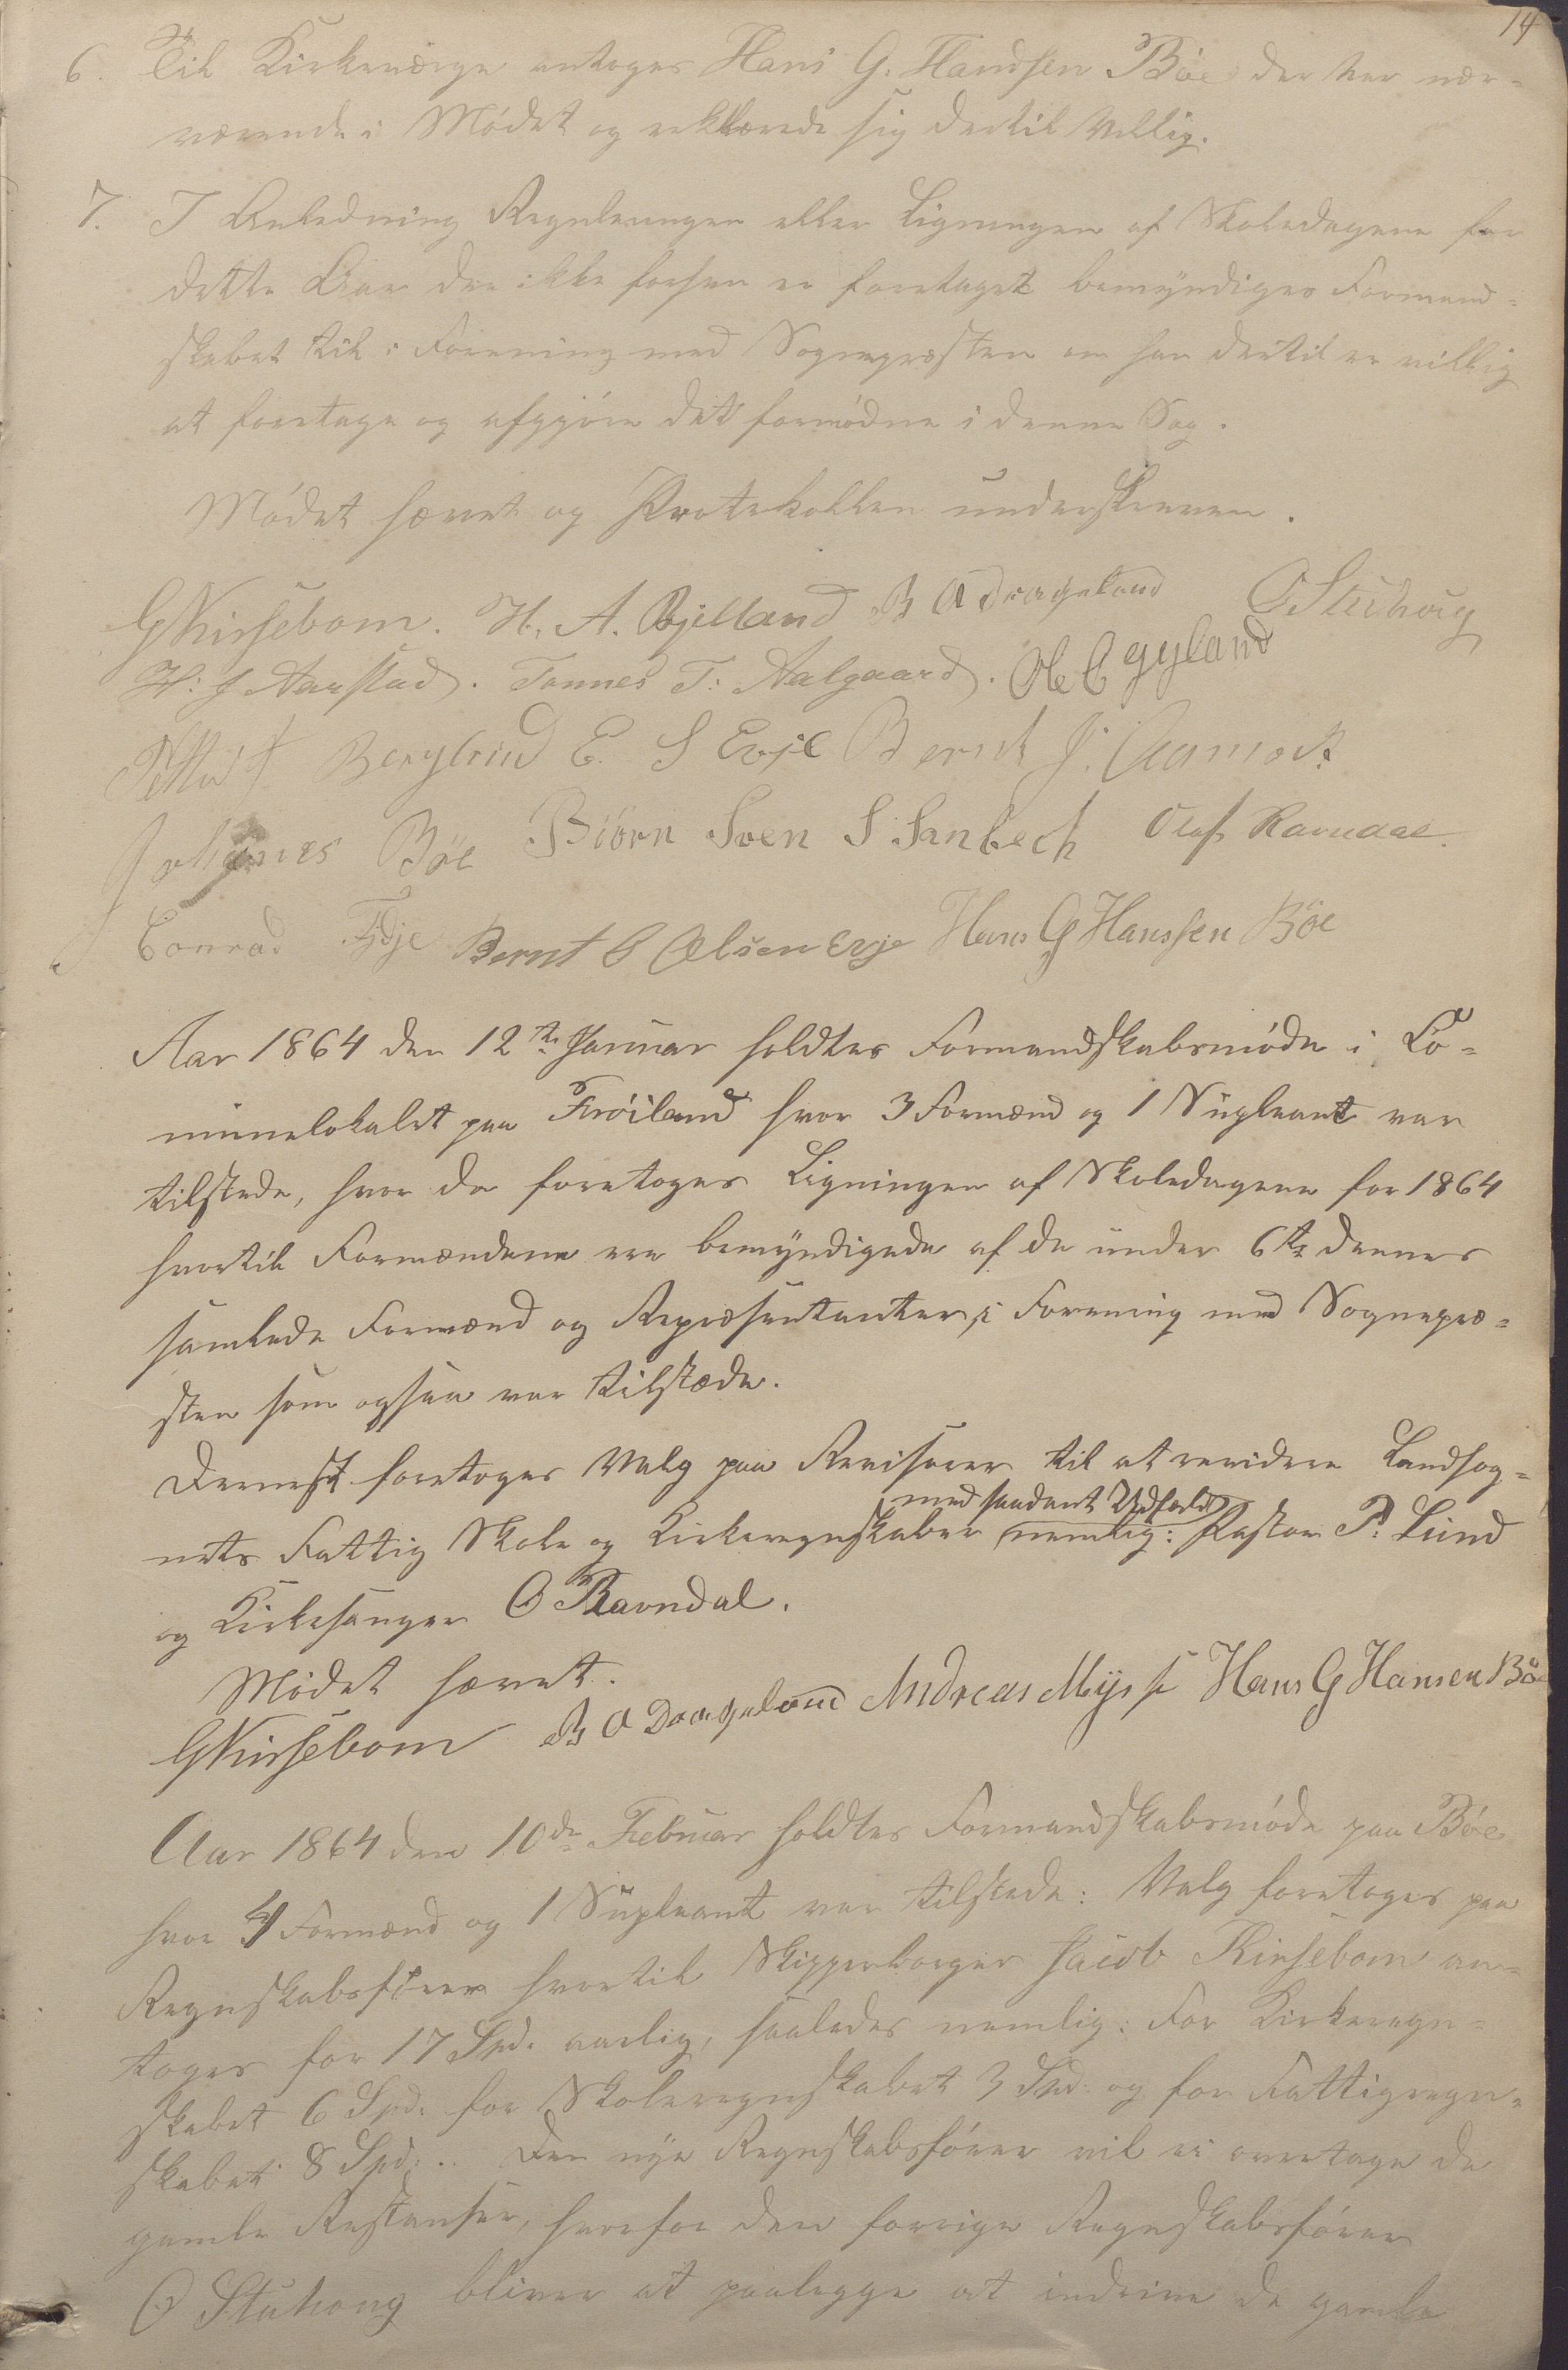 14
6. Til Kirkeværge antoges Hans G. Handsen Böe der var nær-
værende i Mödet og erklærede sig dertil Villig.
7. I Anledning Reguleringen eller Ligningen af Skoledagene for
dette Aar der ikke forhen er foretaget bemyndiges Formand-
skabet til i Forening med Sognepræsten om han dertil er villig
at foretage og afgjöre det fornödne i denne Sag.
Mödet hævet og Protokollen underskreven.
G Kirsebom. H. A. Bjelland B A Drageland O Stuhoug
H: J Aarstad. Tonnes T: Aalgaard. Ole C Gyland
Berglind E. S Evje Bernt J. Aamodt
Johannes Böe Biörn Sven S Sanbech Olaf Ravndal.
Conrad Bernt O Olsen Evje Hans G Hanssen Böe
Aar 1864 den 12te Januar holdtes Formandskabsmöde i Co-
munelokalet paa Fröiland hvor 3 Formænd og 1 Supleant var
tilstede, hvor da foretoges Ligningen af Skoledagene for 1864
hvortil Formændene ere bemyndigede af de under 6te dennes
samlede Formænd og Repræsentanter, i Forening med Sognepræ-
sten som ogsaa var tilstæde.
Dernest foretoges Valg paa Revisorer til at revidere Landsog-
med saadant Udfald
nets Fattig Skole og Kirkeregnskaber nemlig: Pastor P. Lund
og Kirkesanger O Ravndal.
Mödet hævet.
G Kirsebom B A Drageland Andreas Myhse Hans G Hansen Bö
Aar 1864 den 10de Februar holdtes Formandskabsmöde paa Böe
hvor 4 Formænd og 1 Supleant var tilstede: Valg foretoges paa
Regnskabsförer hvortil Skipperborger Jacob Kirsebom an-
toges for 17 Spd. aarlig, saaledes nemlig: For Kirkeregn-
skabet 6 Spd. for Skoleregnskabet 3 Spd. og for Fattigregn-
skabet 8 Spd. Den nye Regnskabsförer vil ei overtage de
gamle Restanser, hvorfor den forrige Regnskabsförer
O Stuhoug bliver at paalegge at indrive de gamle